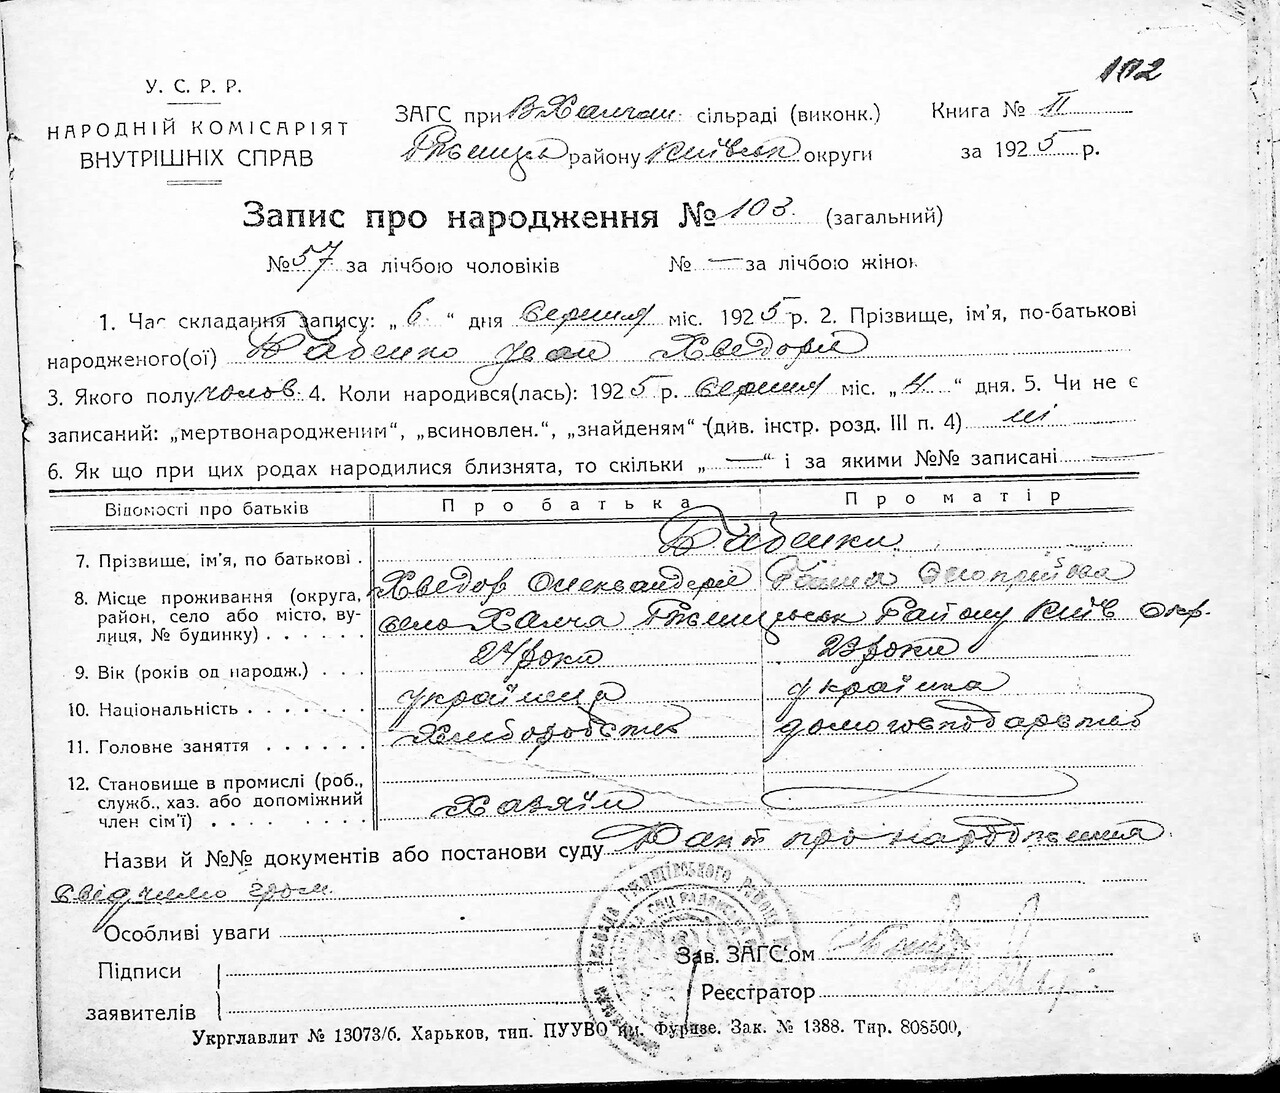 102
У. С. Р. Р.
НАРОДНІЙ КОМІСАРІЯТ
ВНУТРІШНІХ СПРАВ
ЗАГС при В Халчан. сільраді (виконк.)
району Київськ округи
Книга № II
за 1925 р.
Запис про народження № 103. (загальний)
№ 57 за лічбою чоловіків № — за лічбою жінок
1. Час складання запису: „ 6 “ дня серпня міс. 1925 р. 2. Прізвище, ім'я, по-батькові
народженого(ої) Бабенко Іван Хведорів
3. Якого полу чолов. 4. Коли народився(лась): 1925 р. серпня міс. „ 4 “ дня. 5. Чи не є
записаний: „мертвонародженим“, „всиновлен.“, „знайденям“ (див. інстр. розд. III п. 4) ні
6. Як що при цих родах народилися близнята, то скільки „ — “ і за якими №№ записані —
Відомості про батьків Про батька Про матір
7. Прізвище, ім'я, по батькові . Бабенки
Хведор Олександрів Ганна
8. Місце проживання (округа, район, село або місто, вулиця, № будинку) . . . . . . село Халча Району Київ Окр.
9. Вік (років од народж.) . . . 24 роки 23 роки
10. Національність . . . . . . . українец українка
11. Головне заняття . . . . . . Хліборобство домогосподарство
12. Становище в промислі (роб., служб., хаз. або допоміжний член сім'ї) . . . . . . . . Хазяїн
Назви й №№ документів або постанови суду Факт про народження
свідчимо
Особливі уваги
Підписи
заявителів
Зав. ЗАГС'ом
Реєстратор
Укрглавлит № 13073/б. Харьков, тип. ПУУВО им. Фрунзе. Зак. № 1388. Тир. 808500,